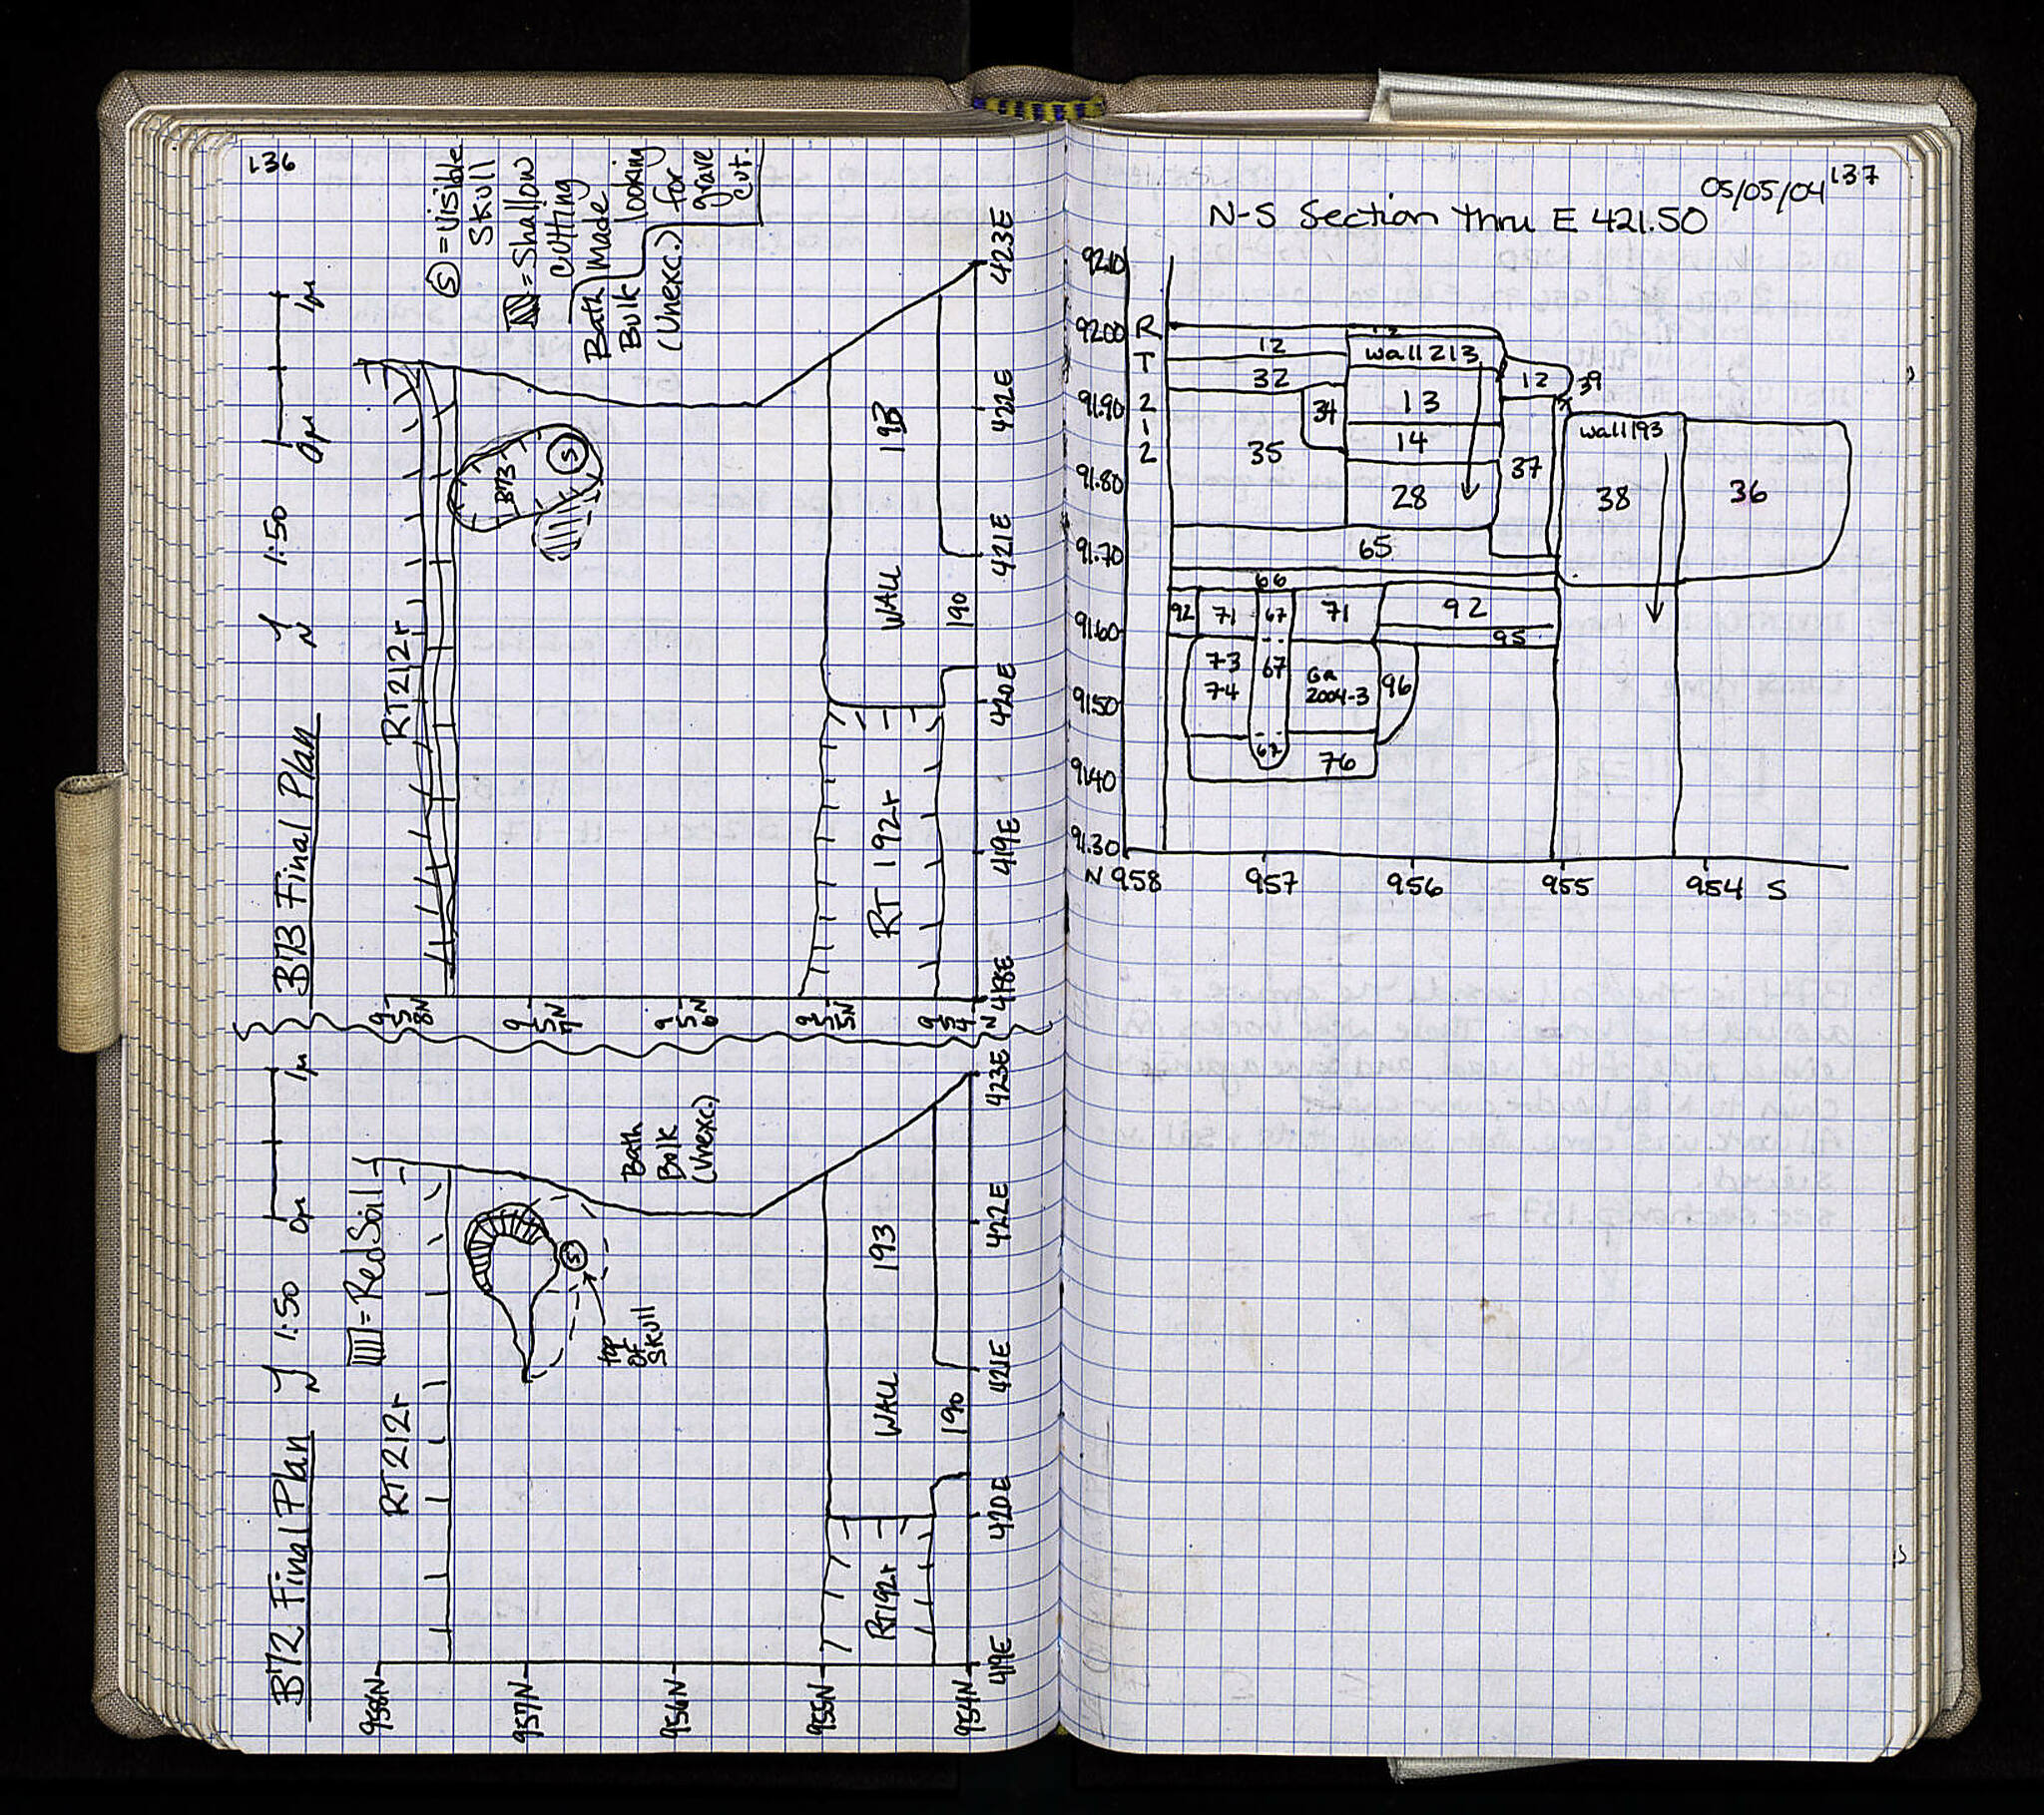 136
B'72 Final Plan N 1:50 0m 1m
= Red Soil
RT212r
Bath
Bulk
(Unexc.)
S
top
of
skull
WALL 193
190
RT192r
958N
957N
956N
955N
954N
419E
420E
421E
422E
423E
B'73 Final Plan N 1:50 0m 1m
S = visible
Skull
= Shallow
cutting
made
looking
for
grave
cut.
Bath
Bulk
(Unexc.)
RT212r
B'73
S
WALL 193
190
RT 192r
958N
957N
956N
955N
954N
418E
419E
420E
421E
422E
423E
137
05/05/04
N-S Section thru E 421.50
92.10
92.00
91.90
91.80
91.70
91.60
91.50
91.40
91.30
R
T
2
1
2
12
12
wall 213
32
12
39
34
13
14
wall 193
35
37
28
38
36
65
66
92
71
67
71
92
95
73
74
67
Ga
2004-3
96
67
76
N 958
957
956
955
954 S